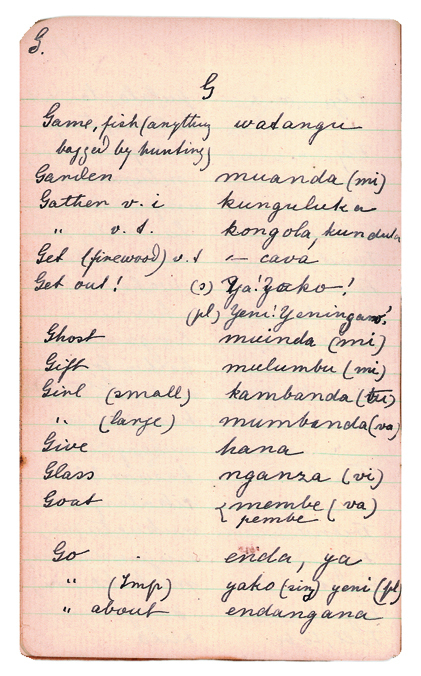 G.
G
Game, fish (anything watangu
bagged by hunting)
Garden muanda (mi)
Gather v. i kunguluka
" v. t. kongola, kunduta
Get (firewood) v. t - cava
Get out! (s) Ya! Yako!
(pl) Yeni! Yeningano!
Ghost muinda (mi)
Gift mulumbu (mi)
Girl (small) kambanda (tu)
" (large) mumbanda (va)
Give hana
Glass nganza (vi)
Goat { membe (va)
pembe
Go enda, ya
" (Imp) yako (sing) yeni (pl)
" about endangana